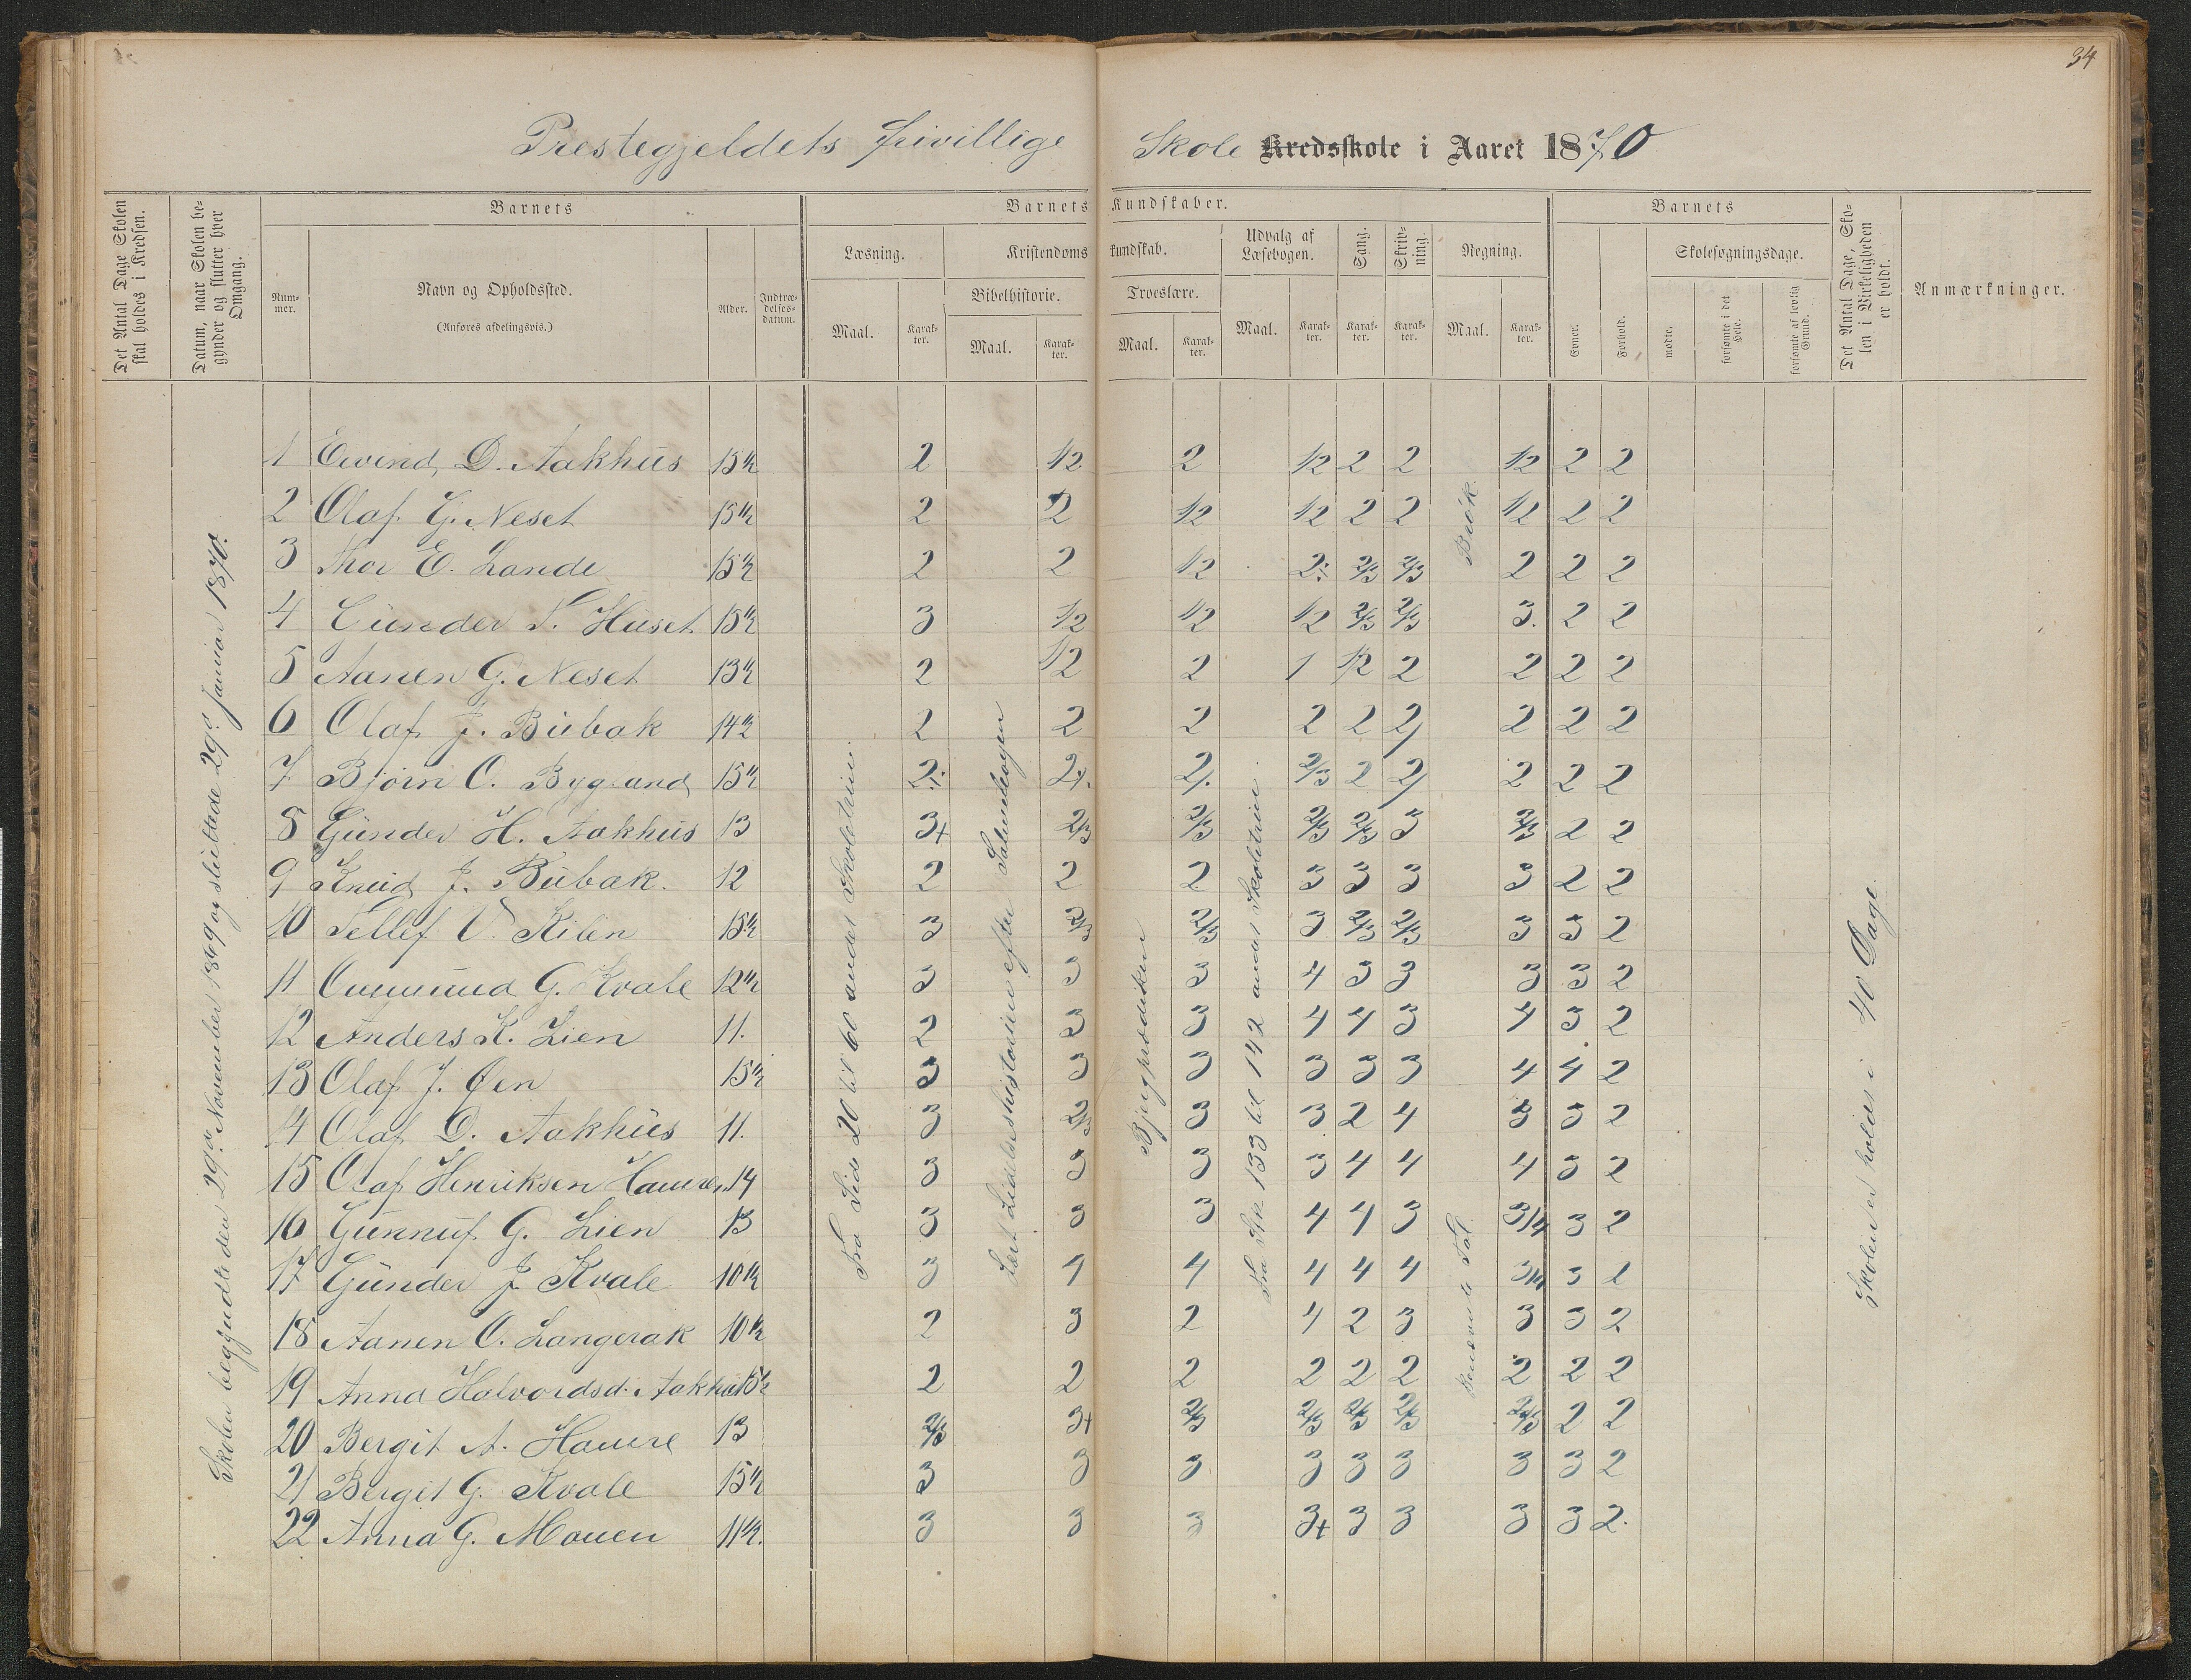 34
Prestegjeldets frivillige Skole Kredsskole i Aaret 1870
Det Antal Dage Skolen skal holdes i Kredsen.
Datum, naar Skolen begynder og slutter hver Omgang.
Barnets
Nummer.
Navn og Opholdssted.
(Anføres afdelingsvis.)
Alder.
Indtrædelsesdatum.
Barnets Kundskaber.
Læsning.
Maal.
Karakter.
Kristendomskundskab.
Bibelhistorie.
Maal.
Karakter.
Troeslære.
Maal.
Karakter.
Udvalg af Læsebogen.
Maal.
Karakter.
Sang.
Karakter.
Skrivning.
Karakter.
Regning.
Maal.
Karakter.
Barnets
Evner.
Forhold.
Skolesøgningsdage.
mødte.
forsømte i det Hele.
forsømte af lovlig Grund.
Det Antal Dage, Skolen i Virkeligheden er holdt.
Anmærkninger.
Skolen begyndte den 29de November 1869 og sluttede 29de Januar 1870.
Fra Side 20 til 60 andet Skoletrin.
Læst Lidelseshistorien efter Salmebogen
Fra Stk. 133 til 142 andet Skoletrin.
Brøk.
Benævnte Tal
Skolen er holdt i 40 Dage.
1 Eivind D. Aakhus 15½ 2 1/2 2 1/2 2 2 1/2 2 2
2 Olaf G. Neset 15½ 2 2 1/2 1/2 2 2 1/2 2 2
3 Thor E. Lande 15½ 2 2 1/2 2÷ 2/3 2/3 2 2 2
4 Gunder T. Huset 15½ 3 1/2 1/2 1/2 2/3 2/3 3. 2 2
5 Aanen G. Neset 13½ 2 1/2 2 1 1/2 2 2 2 2
6 Olaf J. Bubak 14½ 2 2 2 2 2 2 2 2 2
7 Bjørn O. Bygland 15½ 2÷ 2÷ 2÷ 2/3 2 2 2 2 2
8 Gunder H. Aakhus 13 3+ 2/3 2/3 2/3 2/3 3 2/3 2 2
9 Knud J. Bubak. 12 2 2 2 3 3 3 3 2 2
10 Tellef V. Kilen 15½ 3 2/3 2/3 3 2/3 2/3 3 3 2
11 Ommund G. Kvale 12½ 3 3 3 4 3 3 3 3 2
12 Anders K. Lien 11. 2 3 3 4 4 3 4 3 2
13 Olaf J. Øen 15½ 3 3 3 3 3 3 4 4 2
14 Olaf D. Aakhus 11. 3 2/3 3 3 2 4 3 3 2
15 Olaf Henriksen 14 3 3 3 3 4 4 4 3 2
16 Gunnuf G. Lien 13 3 3 3 4 4 3 3/4 3 2
17 Gunder J. Kvale 10½ 3 4 4 4 4 4 3/4 3 1
18 Aanen O. Langerak 10½ 2 3 2 4 2 3 3 3 2
19 Anna Halvordsd. Aakhus 15½ 2 2 2 2 2 2 2 2 2
20 Bergit A. 13 2/3 3+ 2/3 2/3 2/3 2/3 2/3 2 2
21 Bergit G. Kvale 15½ 3 3 3 3 3 3 3 3 2
22 Anna G. Mouen 11½. 3 3 3 3+ 3 3 3 3 2.